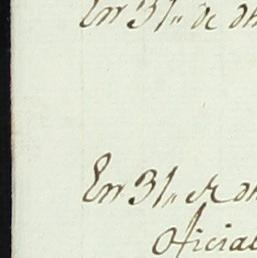 En 31,, de
En 31,, de
oficial